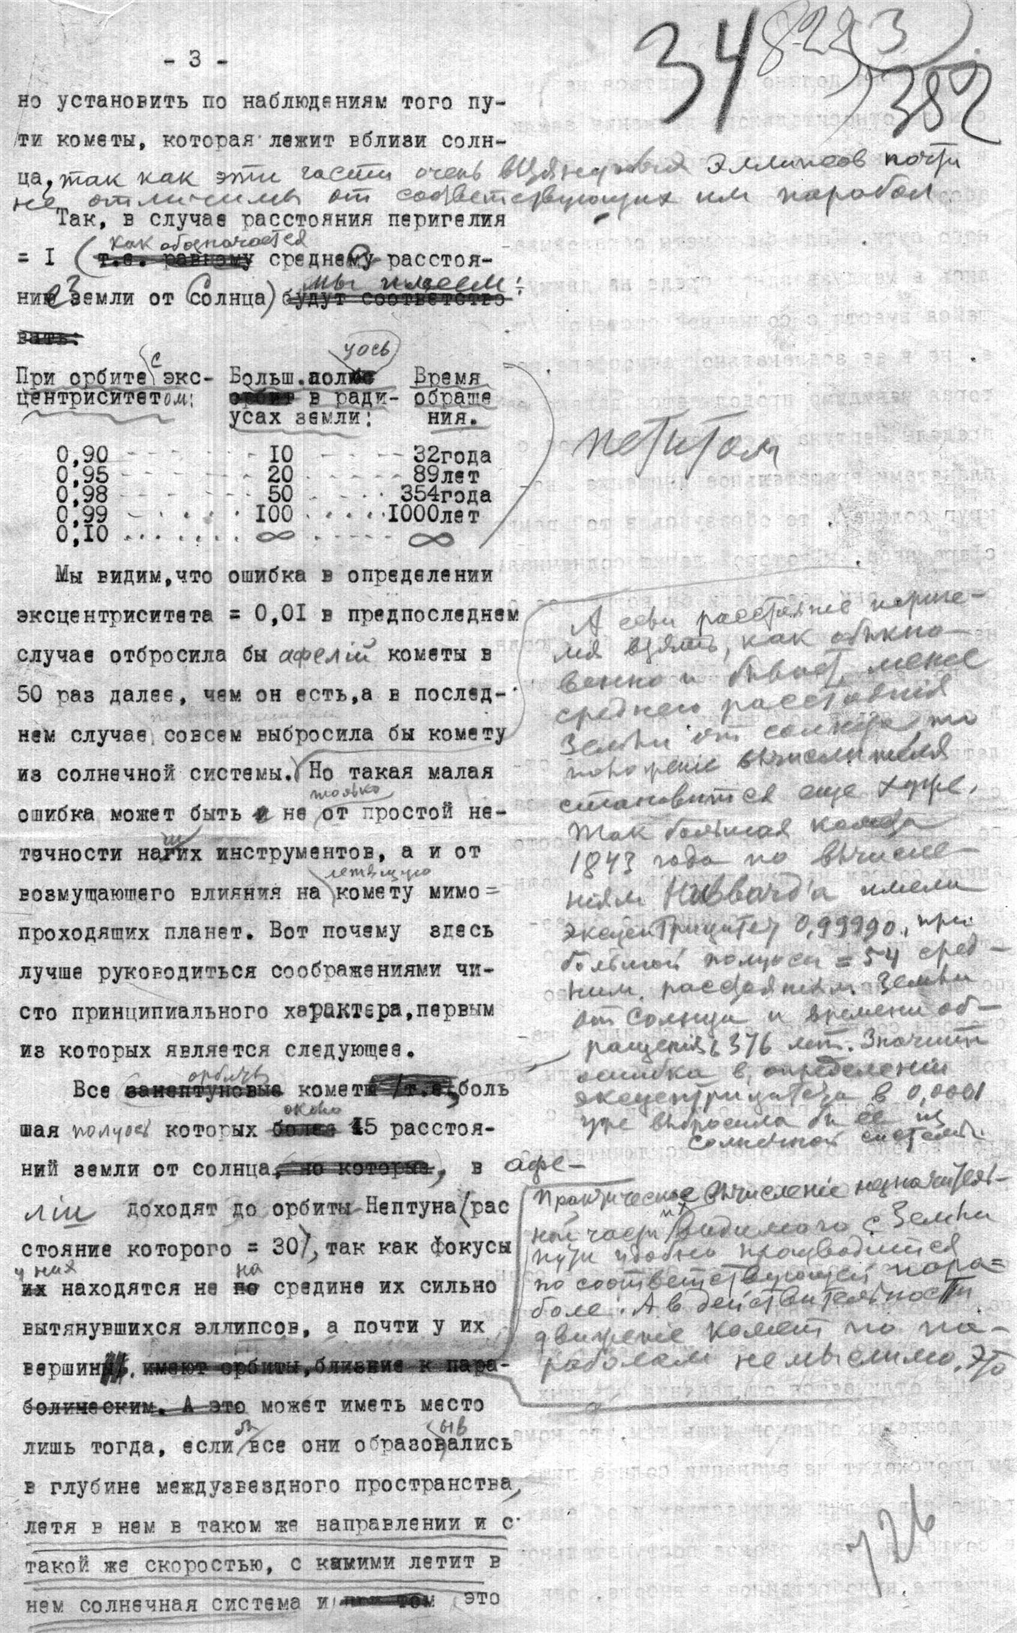 - 3 -
34
822
(3)
382
но установить по наблюдениям того пу-
ти кометы, которая лежит вблизи солн-
ца, так как эти части очень вытянутых эллипсов почти
не отличимы от соответствующих им парабол
Так, в случае расстояния перигелия
как обозначается
= I (т.е. равному среднему расстоя-
мы имеем:
нию земли от Солнца) будут соответство
вать:
уось
При орбите с экс- Больш.полюс Время
центриситетом: орбит в ради- обраще
усах земли: ния.
0,90 - - - 10 - - - 32года
0,95 - - - 20 - - - 89лет
0,98 - - - 50 - - - 354года
0,99 . . . 100 . . . 1000лет
0,10 . . . ∞ . . . ∞
петитом
Мы видим,что ошибка в определении
эксцентриситета = 0,01 в предпоследнем
случае отбросила бы афелій кометы в
50 раз далее, чем он есть,а в послед-
нем случае совсем выбросила бы комету
из солнечной системы. Но такая малая
только
ошибка может быть и не от простой не-
точности наших инструментов, а и от
летящую
возмущающего влияния на комету мимо=
проходящих планет. Вот почему здесь
лучше руководиться соображениями чи-
сто принципиального характера,первым
из которых является следующее.
А если расстояние периге-
лия взять, как обыкно-
венно и бывает, менее
среднего расстояния
Земли от солнца, то
положение вычислителя
становится еще хуже.
Так большая комета
1843 года по вычисле-
ниям Hubbard'а имела
эксцентрицитет 0,99990, при
большой полуоси = 54 сред-
ним расстояниям Земли
от Солнца и времени об-
ращения в 376 лет. Значит
ошибка в определении
эксцентрицитета в 0,0001
уже выбросила бы ее из
солнечной системы.
орбиты
Все занептуновые кометы /т.е. боль
около
шая полуось которых более 15 расстоя-
ний земли от солнца, но которые, в афе-
лии доходят до орбиты Нептуна (рас
стояние которого = 30), так как фокусы
у них на
их находятся не по средине их сильно
вытянувшихся эллипсов, а почти у их
вершины, имеют орбиты,близкие к пара-
болическим. А это может иметь место
лишь тогда, если бы все они образовывались
в глубине междузвездного пространства,
летя в нем в таком же направлении и с
такой же скоростью, с какими летит в
нем солнечная система и при том это
Практическое вычисление незначитель-
ной части их видимого с Земли
пути удобно производится
по соответствующей пара=
боле. А в действительности
движение комет по па-
раболам немыслимо. Это
726